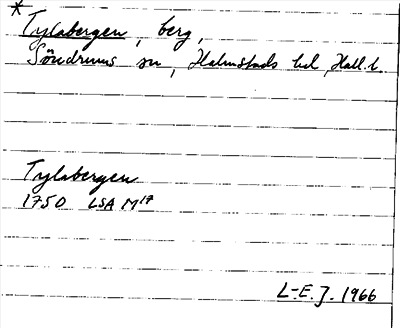 *
Tylabergen, berg,
Söndrums sn, Halmstads hd, Hall. l.
Tylabergen
1750 LSA M17
L-E. J. 1966